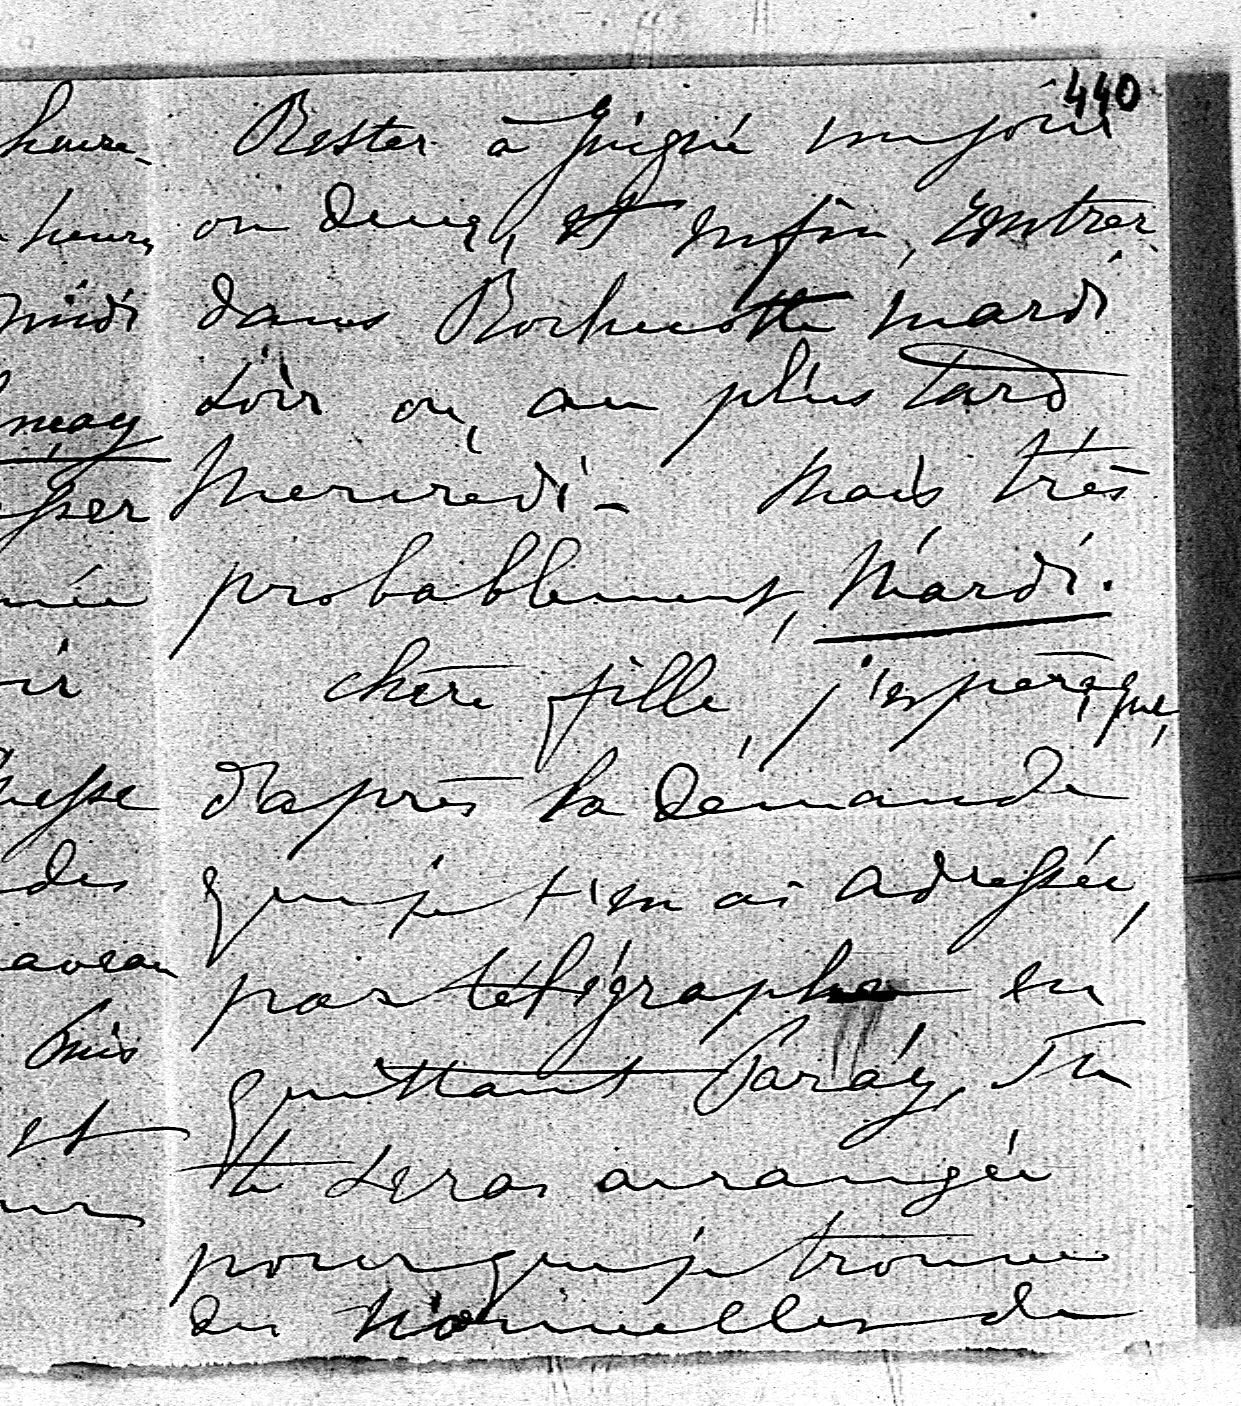 440
Rester à Jeigné un jour
ou deux, et enfin, rentrer
dans Rochecotte mardi
soir ou, au plus tard
Mercredi – Mais très
probablement, Mardi.
chère fille, j'espère, que,
d'après la demande
que je t'en ai adressée,
par télégraphe en
quittant Paray, Tu
te seras arrangée
pour que je trouve
des Nouvelles de
heure
heures
midi
née
des
Puis
et